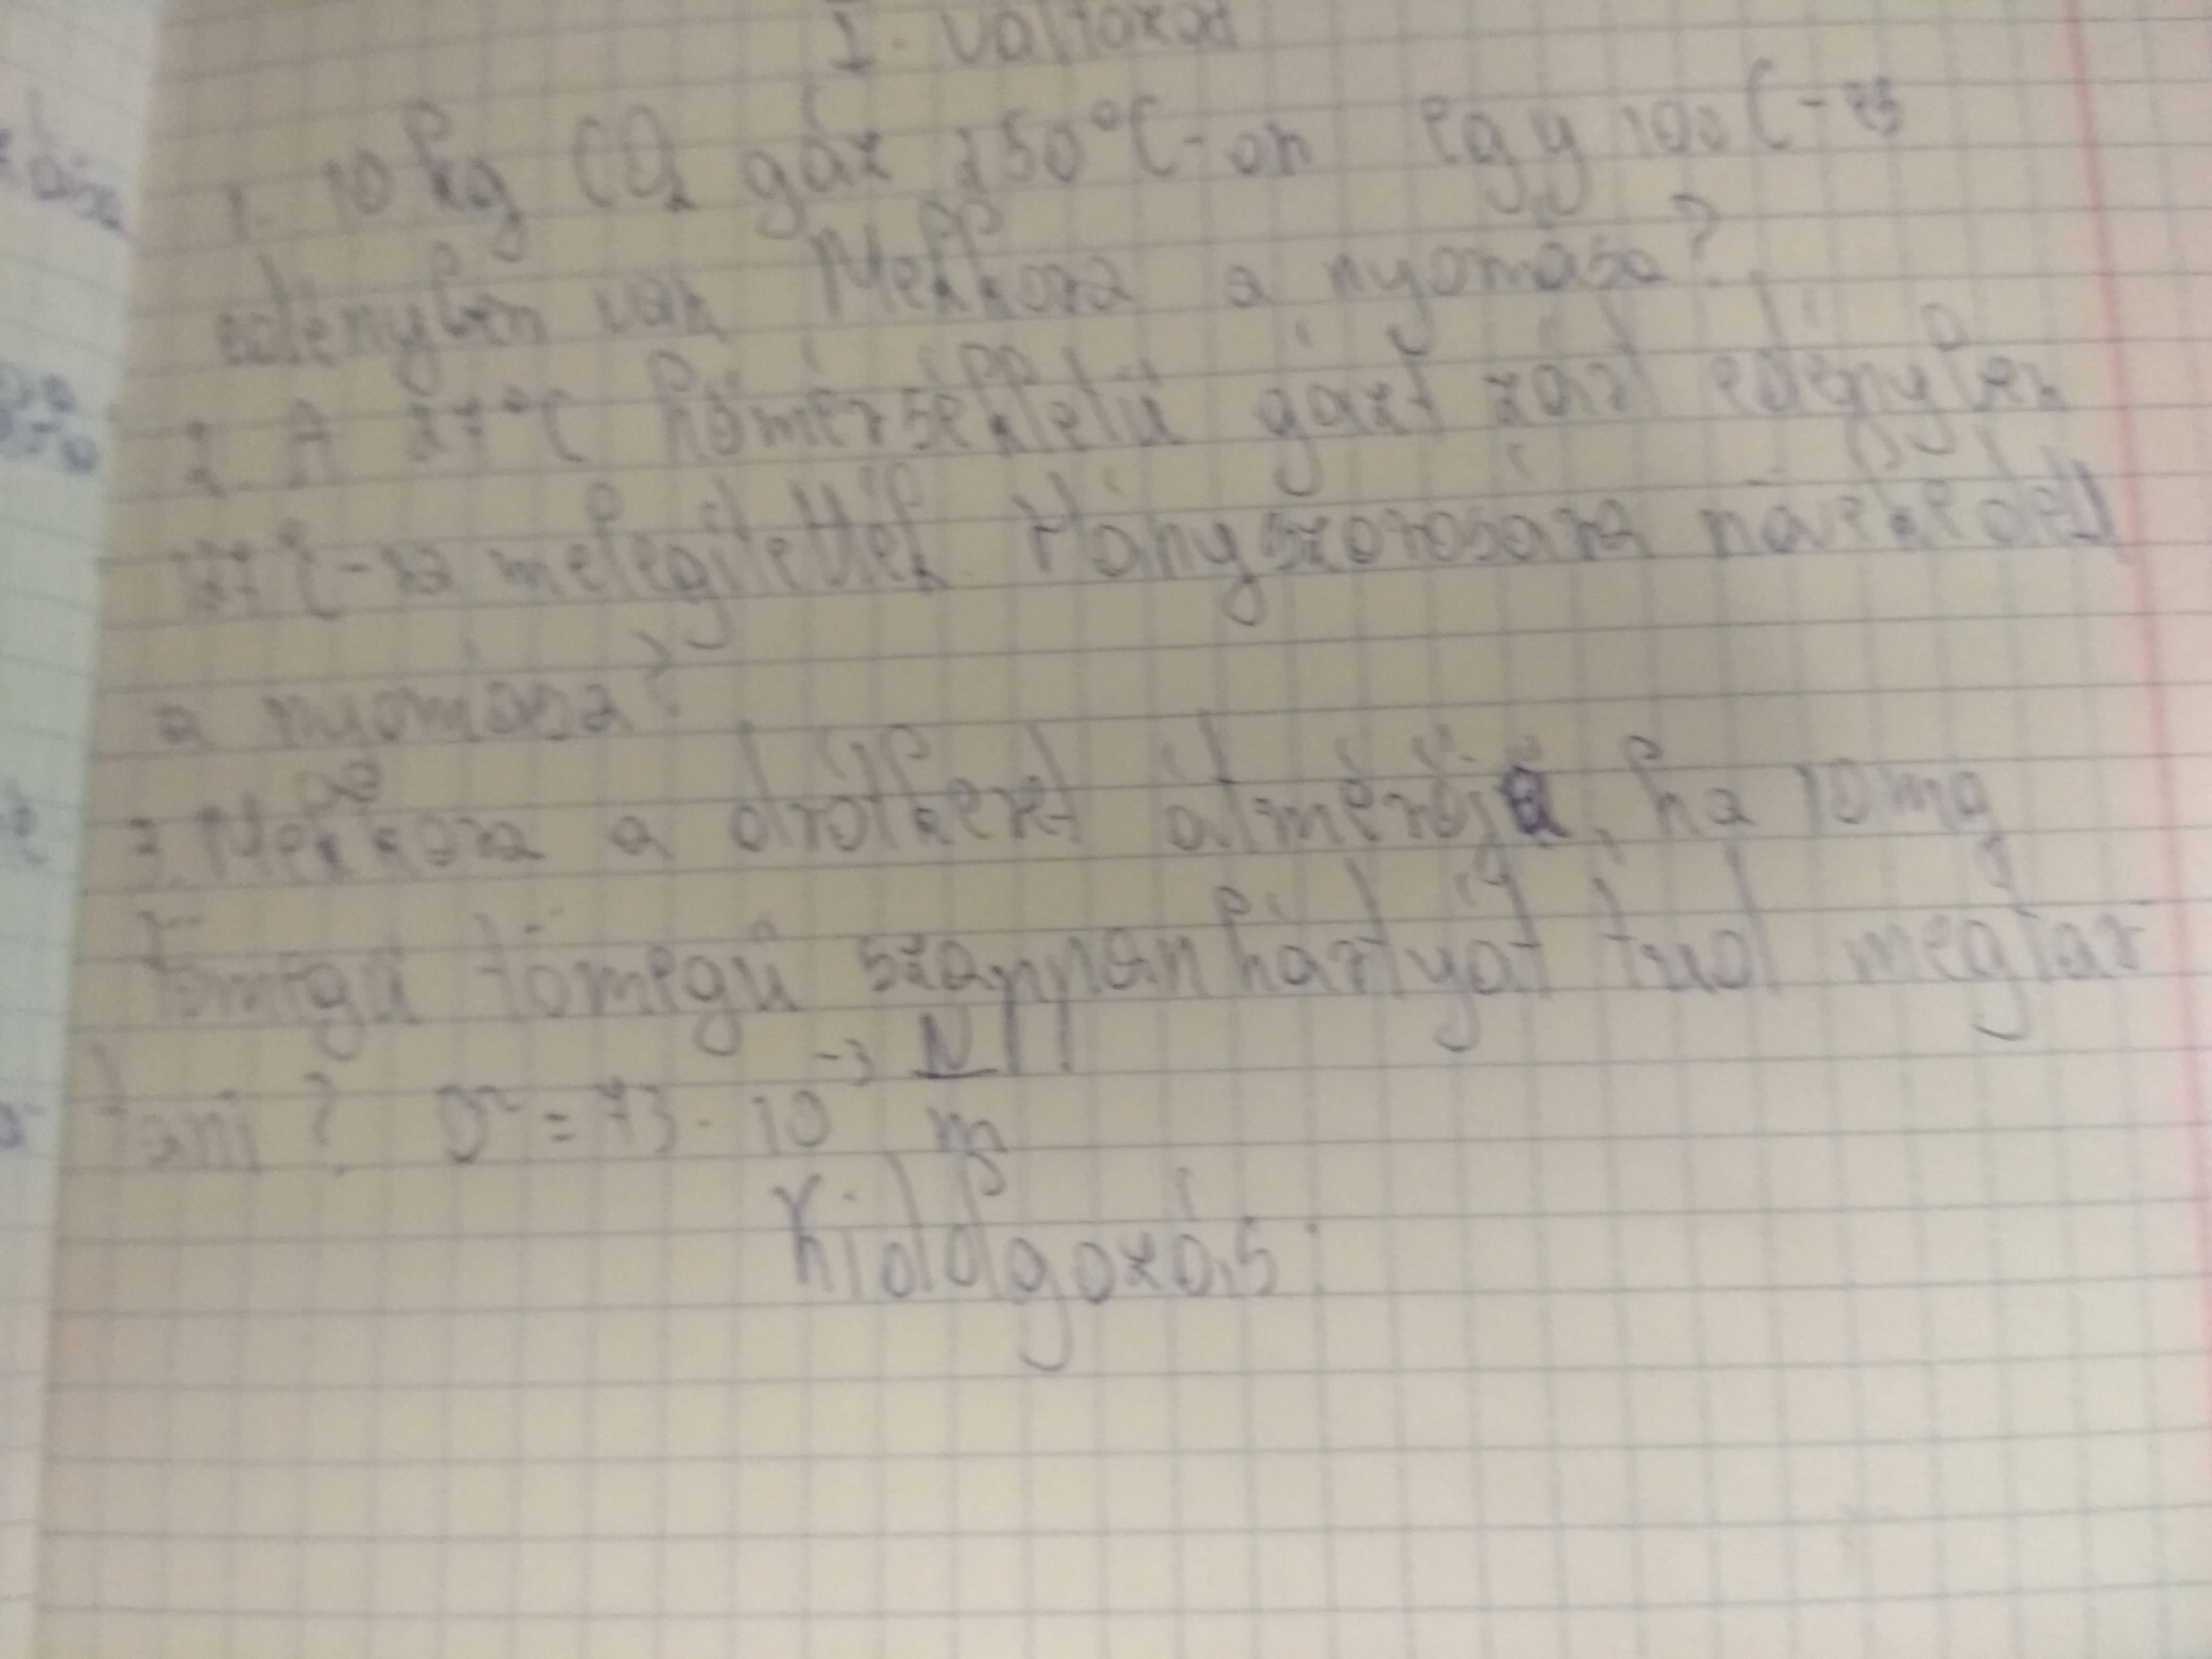 I. változat
1. 10 kg CO₂ gáz 250°C-on egy 100 l-es
edényben van Mekkora a nyomása?
2. A 27°C hőmérsékletű gázt zárt edényben
-ra melegítették. Hányszorosára növekedett
a nyomása?
3. Mekkora a drótkeret átmérője, ha 10mg
tömegű tömegű szappanhártyát tud megtar
tani? σ = 73 · 10⁻³ N/m
Kidolgozás: